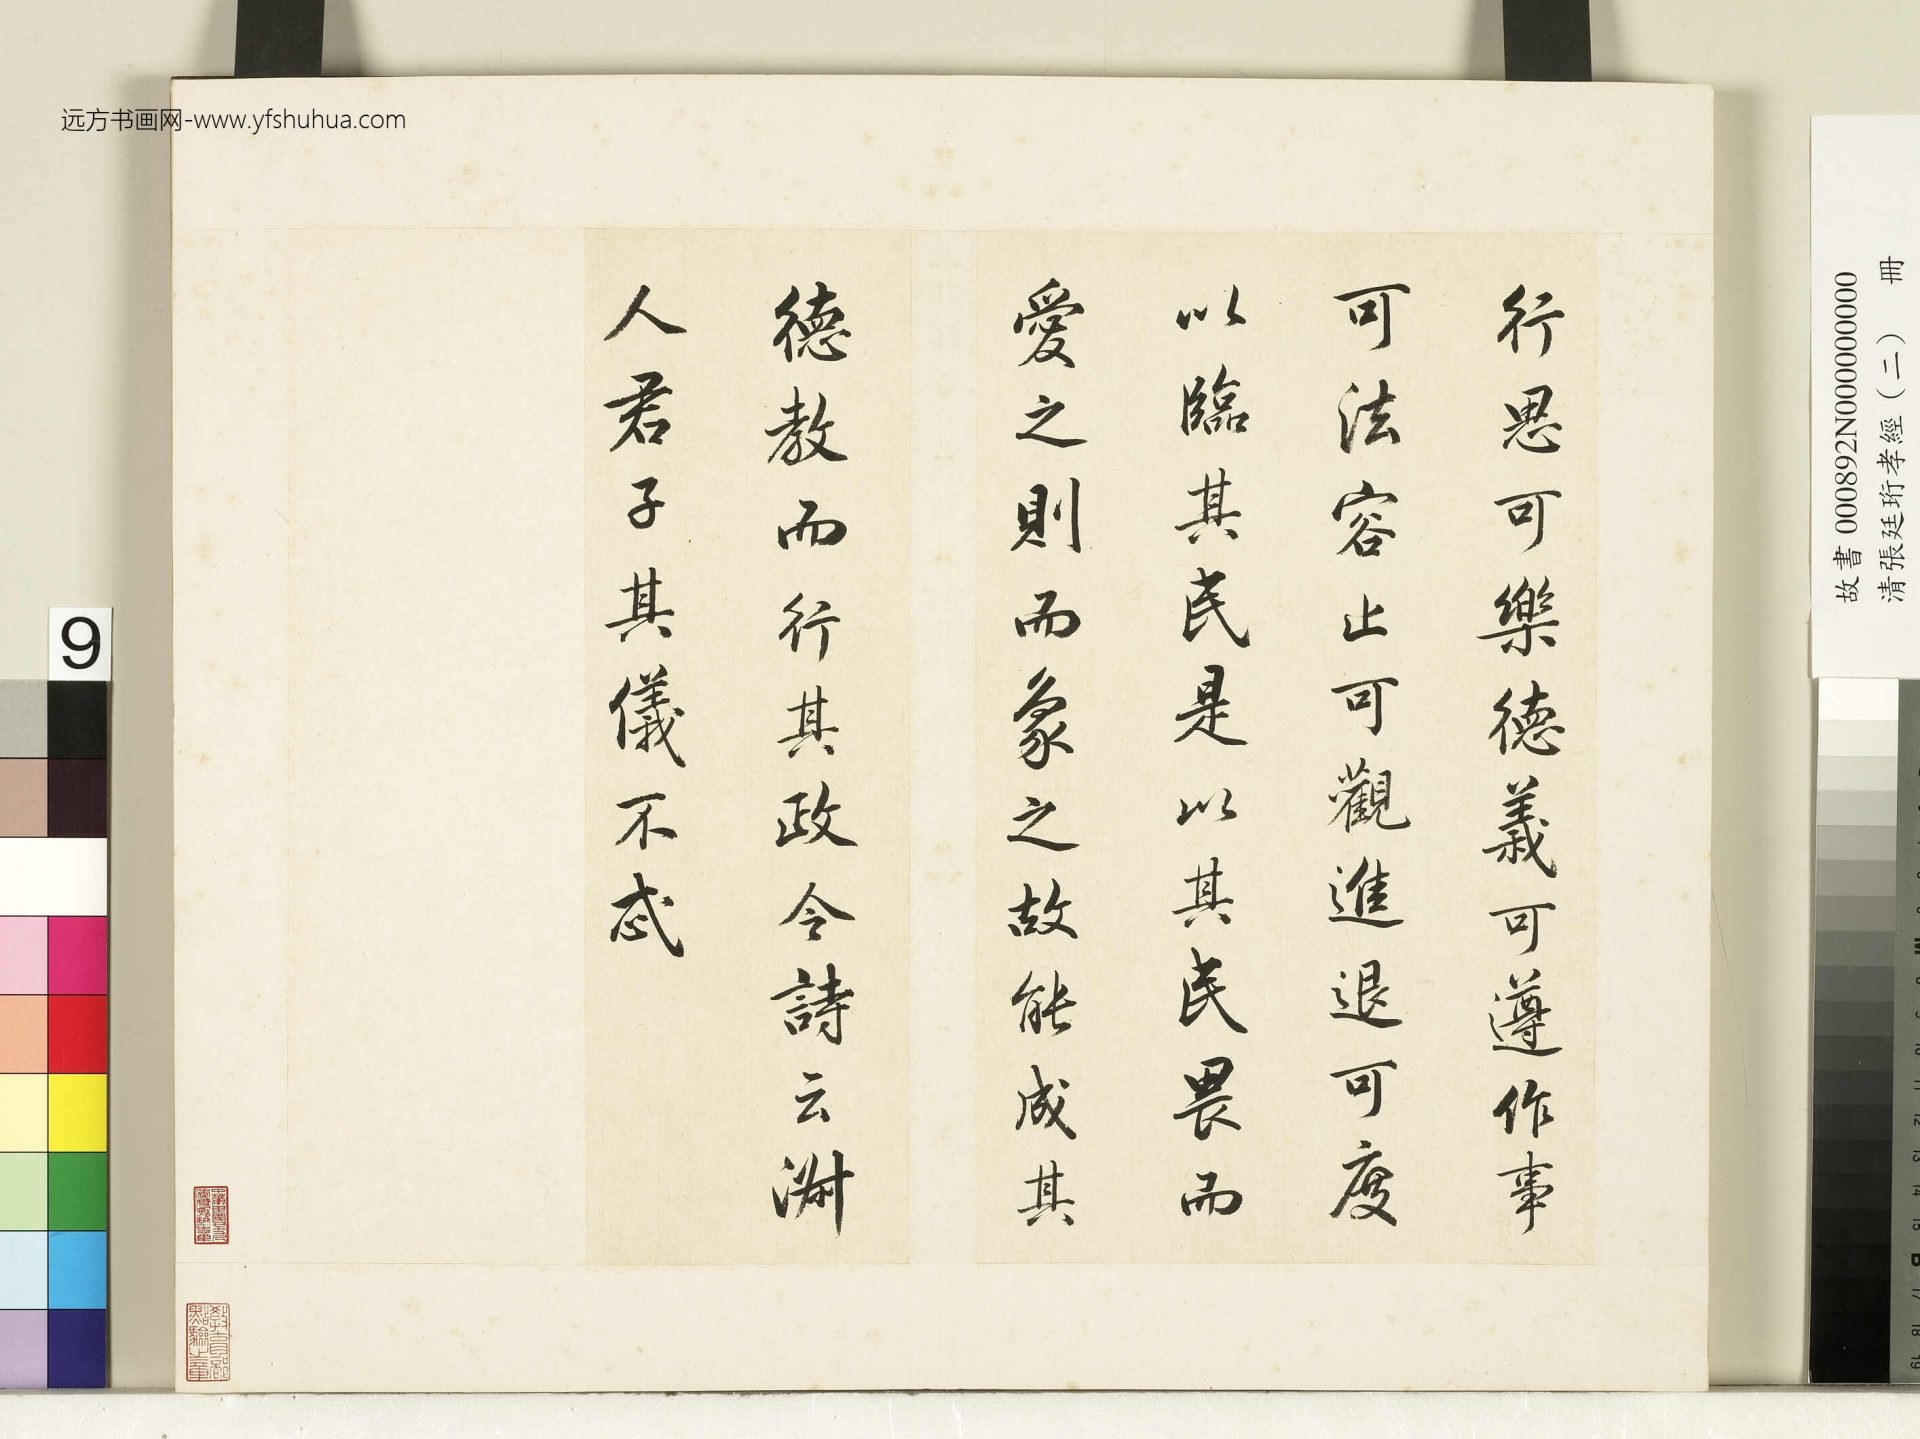 远方书画网-www.yfshuhua.com
行思可樂德義可遵作事
可法容止可觀進退可度
以臨其民是以其民畏而
愛之則而象之故能成其
德教而行其政令詩云淑
人君子其儀不忒
故書 000892N000000000
清張廷珩孝經(二) 冊
9
教育部
點驗之章